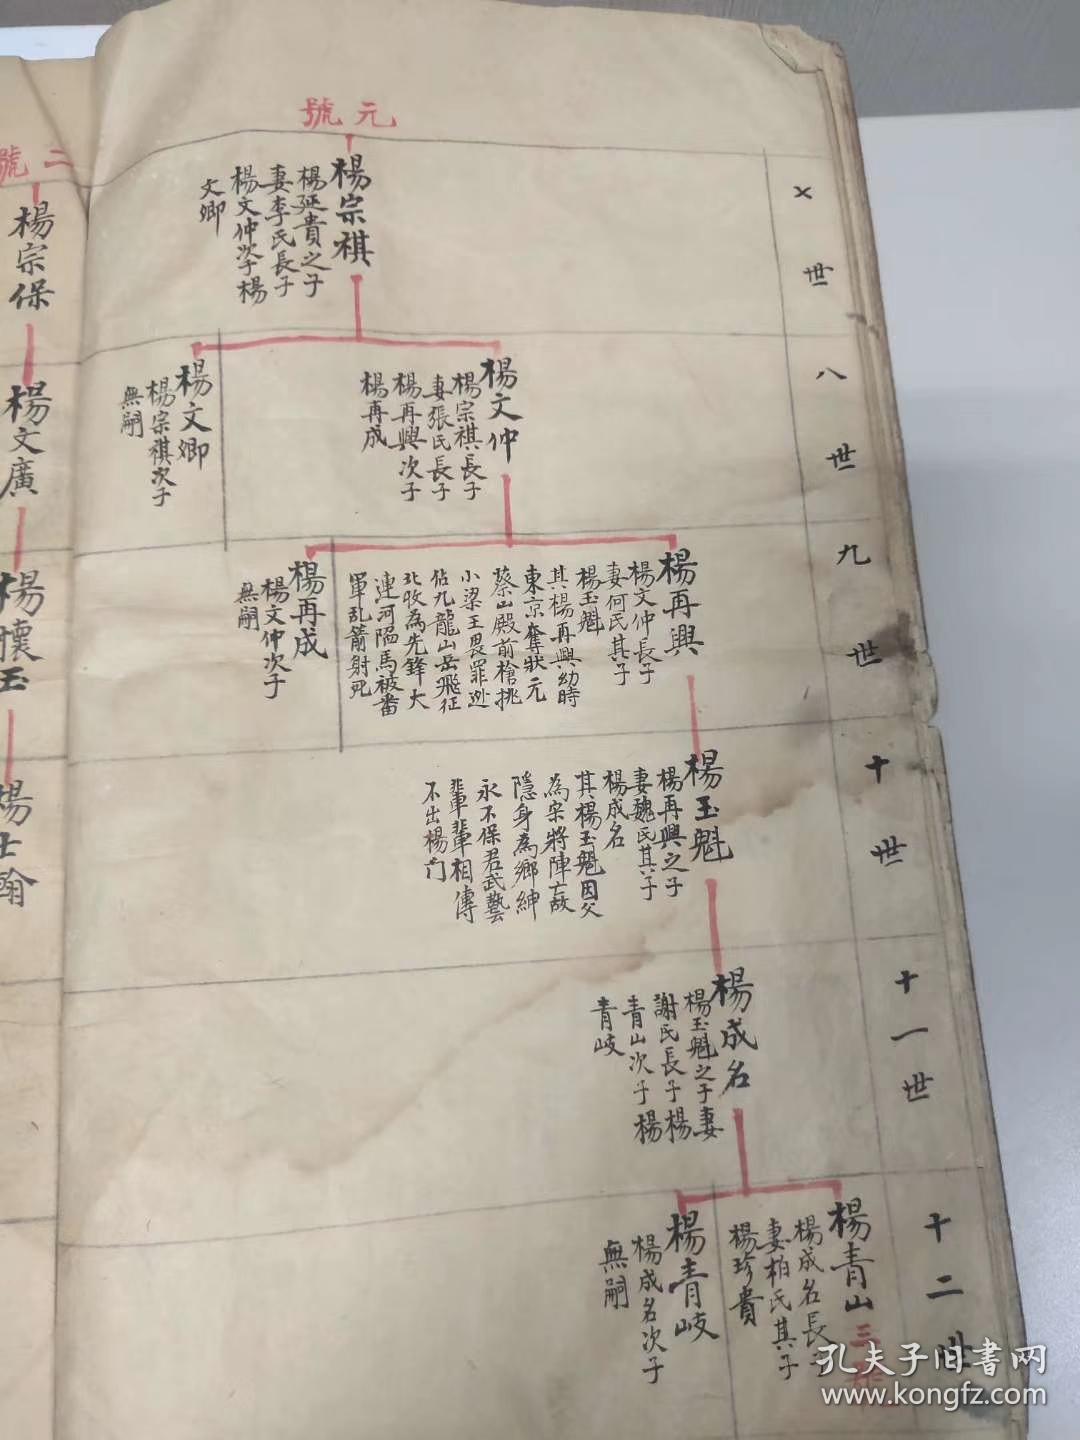 元號
七世
楊宗祺
楊延貴之子
妻李氏長子
楊文仲次子楊
文卿
八世
楊文仲
楊宗祺長子
妻張氏長子
楊再興次子
楊再成
楊文卿
楊宗祺次子
無嗣
九世
楊再興
楊文仲長子
妻何氏其子
楊玉魁
其楊再興幼時
東京奪狀元
蔡山殿前槍挑
小梁王畏罪逃
佔九龍山岳飛征
北收為先鋒大
連河陷馬被番
軍乱箭射死
楊再成
楊文仲次子
無嗣
十世
楊玉魁
楊再興之子
妻魏氏其子
楊成名
其楊玉魁因父
為宋將陣亡故
隱身為鄉紳
永不保君武藝
輩輩相傳
不出楊门
十一世
楊成名
楊玉魁之子妻
謝氏長子楊
青山次子楊
青岐
十二世
楊青山
楊成名長子
妻柏氏其子
楊珍貴
楊青岐
楊成名次子
無嗣
二號
楊宗保
楊文廣
楊懷玉
楊士翰
孔夫子旧書网
www.kongfz.com